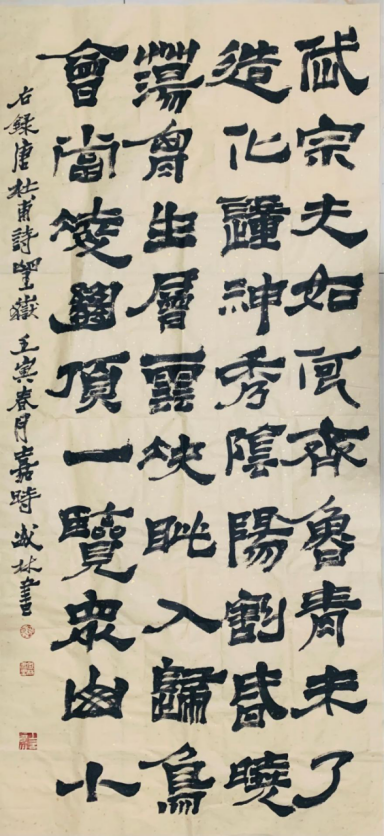 岱宗夫如何齊魯青未了
造化鐘神秀陰陽割昏曉
蕩胷生層雲決眦入歸鳥
會當凌絕頂一覽眾山小
右録唐杜甫詩望嶽壬寅春月嘉時成林書